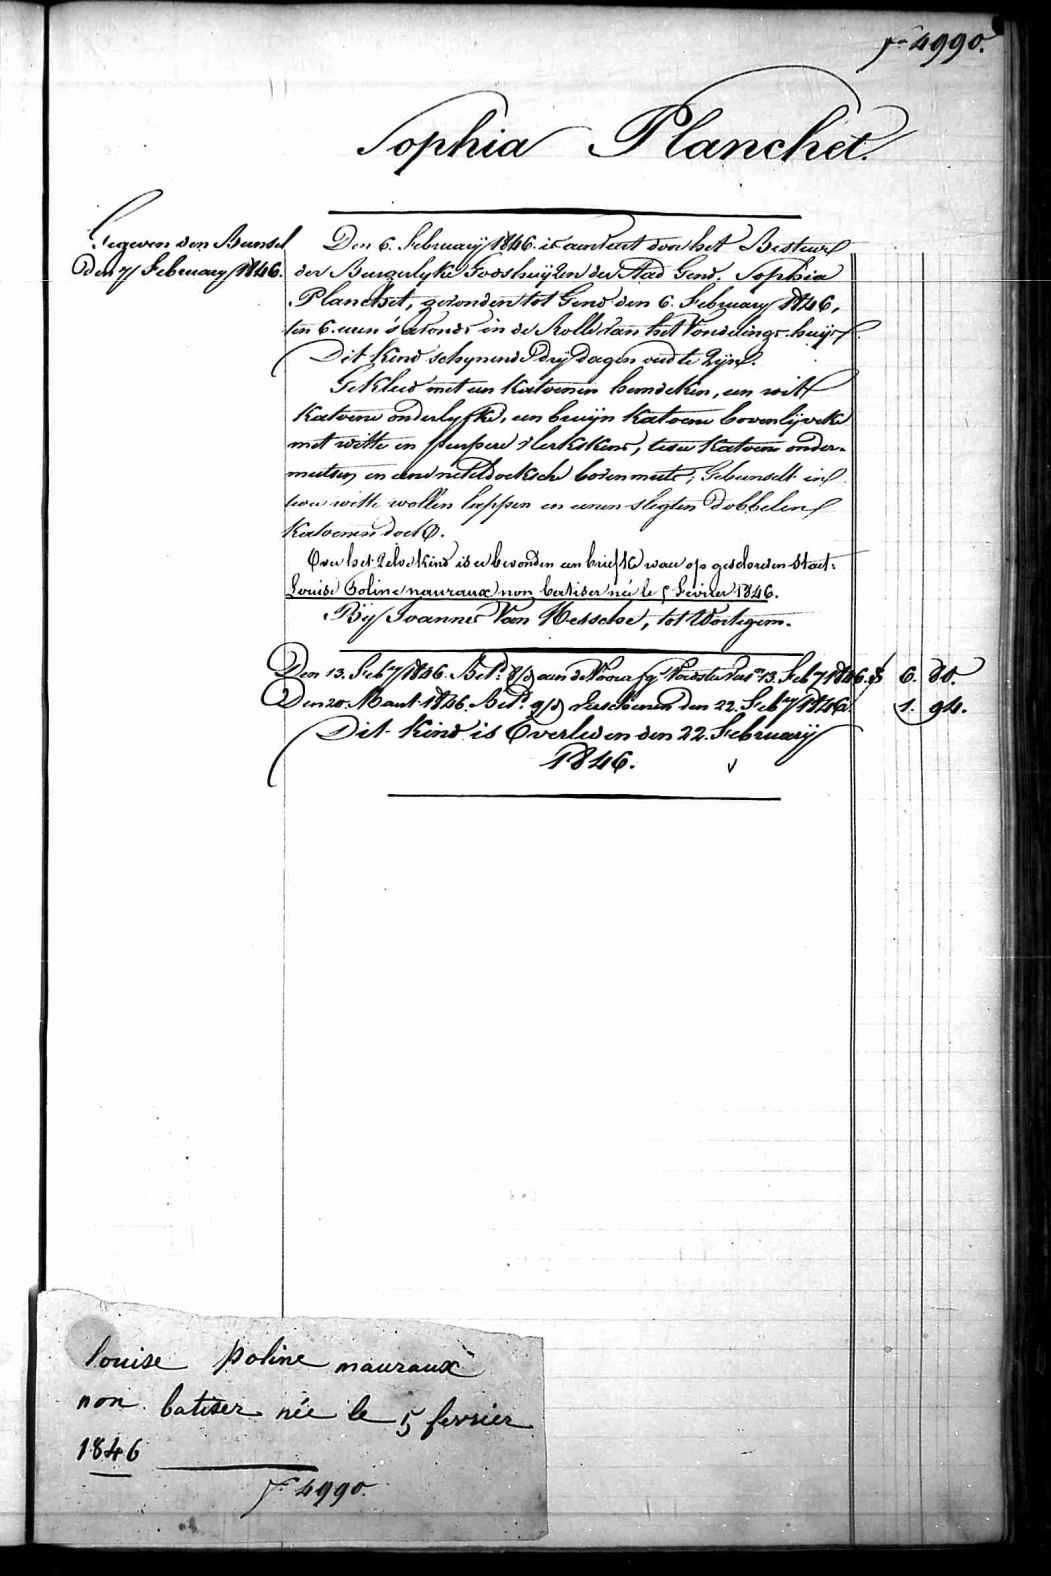 f° 4990.
Sophia Planchet.
Gegeven den Bunsel
den 7 February 1846.
Den 6. February 1846. is aenveert door het Bestuur
der Burgerlyke Godshuizen der Stad Gend. Sophia
Planchet, gevonden tot Gend den 6. February 1846,
ten 6. uren 's avonds in de Rolle van het Vondelings-huys
Dit Kind schynende dry dagen oud te zyn.
Gekleed met een Katoenen hemdeken, een wit
Katoene onderlyfke, een bruyn Katoene bovenlyveke
met witte en purpere vlerkskens, twee Katoene onder-
mutsen en eene neteldoeksche bovenmuts; Gebunselt in
twee witte wollen lappen en eenen slegten dobbelen
Katoenen doek.
Over het zelve Kind is er bevonden een briefke waer op geschreven staet:
Louise Poline nauraux non batiser née le 5 fevrier 1846.
By Joannes Van Hessche, tot Wortegem.
Den 13. Feby 1846. Bet. 8/d aen de Voorsg. Voedster van 13. Feb 7 1846. f 6. 80.
Den 20. Maart 1846. Bet. 9/d verschenen den 22. Feby 1846. 1. 94.
Dit Kind is Overleden den 22. February
1846.
louise poline nauraux
non batiser née le 5 fevrier
1846
f° 4990.